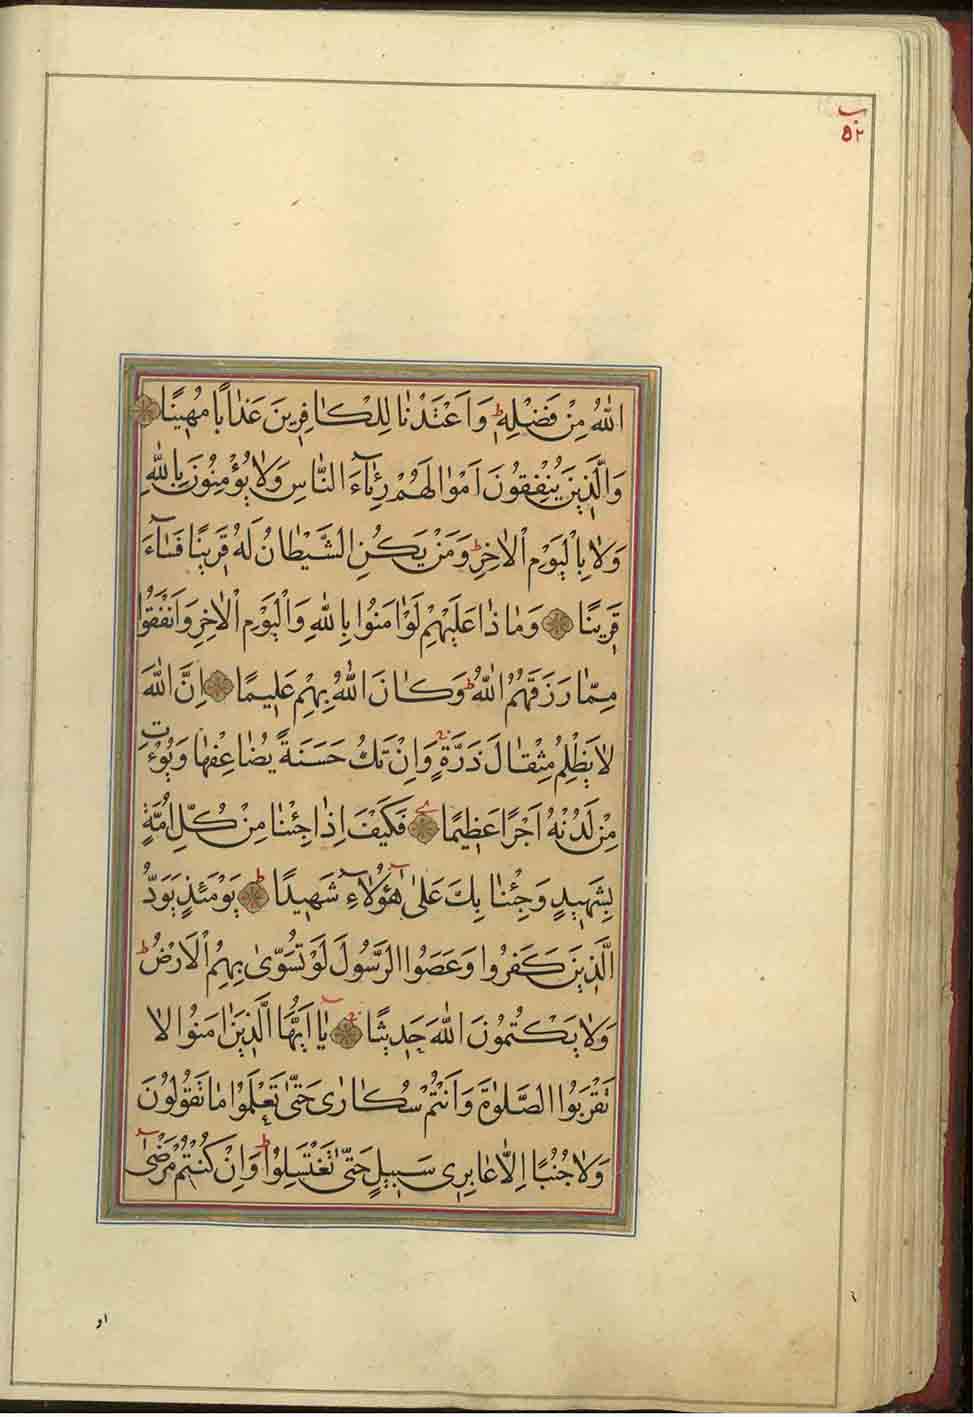 ب
٥٢
اللّٰهُ مِنْ فَضْلِهٖ ط وَاَعْتَدْنَا لِلْكَافِرِينَ عَذَابًا مُهِينًا
وَالَّذِينَ يُنْفِقُونَ اَمْوَالَهُمْ رِئَآءَ النَّاسِ وَلَا يُؤْمِنُونَ بِاللّٰهِ
وَلَا بِالْيَوْمِ الْاٰخِرِ ط وَمَنْ يَكُنِ الشَّيْطَانُ لَهُ قَرِينًا فَسَآءَ
قَرِينًا وَمَاذَا عَلَيْهِمْ لَوْ اٰمَنُوا بِاللّٰهِ وَالْيَوْمِ الْاٰخِرِ وَاَنْفَقُوا
مِمَّا رَزَقَهُمُ اللّٰهُ ط وَكَانَ اللّٰهُ بِهِمْ عَلِيمًا اِنَّ اللّٰهَ
لَا يَظْلِمُ مِثْقَالَ ذَرَّةٍ وَاِنْ تَكُ حَسَنَةً يُضَاعِفْهَا وَيُؤْتِ
مِنْ لَدُنْهُ اَجْرًا عَظِيمًا فَكَيْفَ اِذَا جِئْنَا مِنْ كُلِّ اُمَّةٍ
بِشَهِيدٍ وَجِئْنَا بِكَ عَلٰى هٰٓؤُلَآءِ شَهِيدًا ط يَوْمَئِذٍ يَوَدُّ
الَّذِينَ كَفَرُوا وَعَصَوُا الرَّسُولَ لَوْ تُسَوّٰى بِهِمُ الْاَرْضُ ط
وَلَا يَكْتُمُونَ اللّٰهَ حَدِيثًا يَا اَيُّهَا الَّذِينَ اٰمَنُوا لَا
تَقْرَبُوا الصَّلٰوةَ وَاَنْتُمْ سُكَارٰى حَتّٰى تَعْلَمُوا مَا تَقُولُونَ
وَلَا جُنُبًا اِلَّا عَابِرِى سَبِيلٍ حَتّٰى تَغْتَسِلُوا ط وَاِنْ كُنْتُمْ مَرْضٰٓى
او